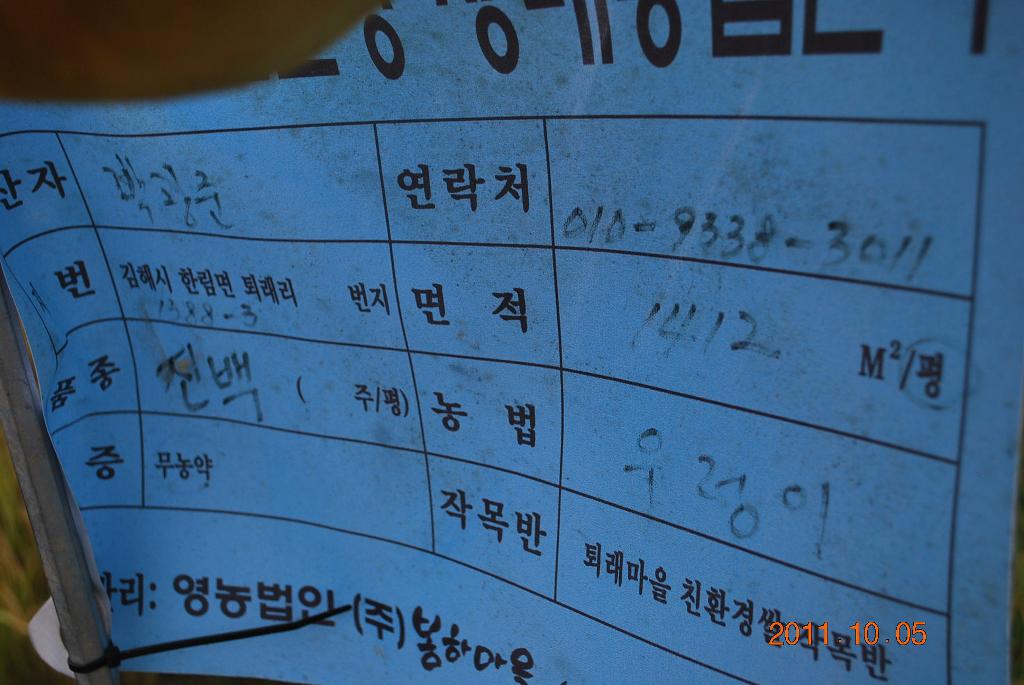 산자 박칠준 연락처 010-9338-3011
번 김해시 한림면 퇴래리 번지 면 적 1412 M²/평
1388-3
품종 진백 ( 주/평) 농 법 우렁이
증 무농약 작목반 퇴래마을 친환경쌀 작목반
리: 영농법인 (주)봉하마을
2011.10.05